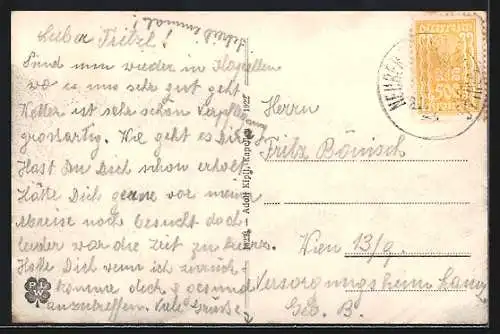 Lieber Fritzl!
Schreib einmal!
Sind nun wieder in Kapellen
wo es uns sehr gut geht
Wetter ist sehr schön Verpflegung
grossartig. Wie geht es Dir?
Hast Du Dich schon erholt
Hätte Dich gerne vor meiner
Abreise noch besucht doch
leider war die Zeit zu kurz.
Hoffe Dich wenn ich zurück-
komme doch gesund
anzutreffen. Viele Grüße
1922
Adolf Kipfl, Kapellen
1922
Herrn
Fritz Bönisch
Wien 13/9.
Versorgungsheim Lainz
500
NEUBERG